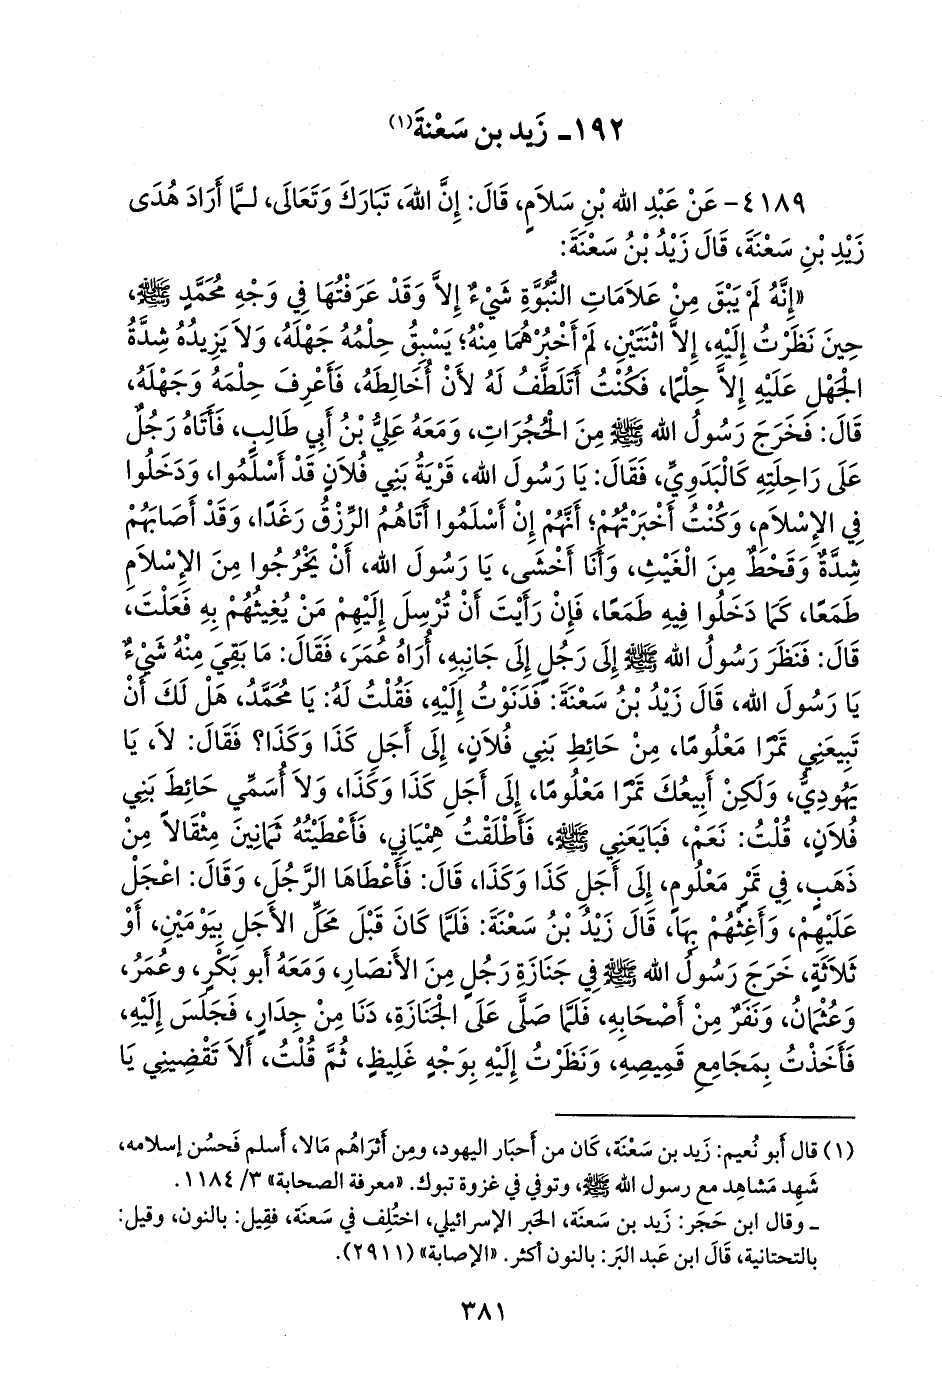 ١٩٢ـ زَيد بن سَعْنةَ(١)
٤١٨٩- عَنْ عَبْدِ الله بْنِ سَلاَمٍ، قَالَ: إِنَّ اللهَ، تَبَارَكَ وَتَعَالَى، لـمَّا أَرَادَ هُدَى
زَيْدِ بْنِ سَعْنَةَ، قَالَ زَيْدُ بْنُ سَعْنَةَ:
«إِنَّهُ لَمْ يَبْقَ مِنْ عَلاَمَاتِ النُّبُوَّةِ شَيْءٌ إِلاَّ وَقَدْ عَرَفْتُهَا فِي وَجْهِ مُحَمَّدٍ ﷺ،
حِينَ نَظَرْتُ إِلَيْهِ، إِلاَّ اثْنَتَيْنِ، لَمْ أَخْبُرْهُمَا مِنْهُ؛ يَسْبِقُ حِلْمُهُ جَهْلَهُ، وَلاَ يَزِيدُهُ شِدَّةُ
الجَهْلِ عَلَيْهِ إِلاَّ حِلْمًا، فَكُنْتُ أَتَلَطَّفُ لَهُ لأَنْ أُخَالِطَهُ، فَأَعْرِفَ حِلْمَهُ وَجَهْلَهُ،
قَالَ: فَخَرَجَ رَسُولُ الله ﷺ مِنَ الحُجُرَاتِ، وَمَعَهُ عَلِيُّ بْنُ أَبِي طَالِبٍ، فَأَتَاهُ رَجُلٌ
عَلَى رَاحِلَتِهِ كَالْبَدَوِيِّ، فَقَالَ: يَا رَسُولَ الله، قَرْيَةُ بَنِي فُلاَنٍ قَدْ أَسْلَمُوا، وَدَخَلُوا
فِي الإِسْلاَمِ، وَكُنْتُ أَخْبَرْتُهُمْ؛ أَنَّهُمْ إِنْ أَسْلَمُوا أَتَاهُمُ الرِّزْقُ رَغَدًا، وَقَدْ أَصَابَهُمْ
شِدَّةٌ وَقَحْطٌ مِنَ الْغَيْثِ، وَأَنَا أَخْشَى، يَا رَسُولَ الله، أَنْ يَخْرُجُوا مِنَ الإِسْلاَمِ
طَمَعًا، كَمَا دَخَلُوا فِيهِ طَمَعًا، فَإِنْ رَأَيْتَ أَنْ تُرْسِلَ إِلَيْهِمْ مَنْ يُغِيثُهُمْ بِهِ فَعَلْتَ،
قَالَ: فَنَظَرَ رَسُولُ الله ﷺ إِلَى رَجُلٍ إِلَى جَانِبِهِ، أُرَاهُ عُمَرَ، فَقَالَ: مَا بَقِيَ مِنْهُ شَيْءٌ
يَا رَسُولَ الله، قَالَ زَيْدُ بْنُ سَعْنَةَ: فَدَنَوْتُ إِلَيْهِ، فَقُلْتُ لَهُ: يَا مُحَمَّدُ، هَلْ لَكَ أَنْ
تَبِيعَنِي تَمْرًا مَعْلُومًا، مِنْ حَائِطِ بَنِي فُلاَنٍ، إِلَى أَجَلِ كَذَا وَكَذَا؟ فَقَالَ: لاَ، يَا
يَهُودِيُّ، وَلَكِنْ أَبِيعُكَ تَمْرًا مَعْلُومًا، إِلَى أَجَلِ كَذَا وَكَذَا، وَلاَ أُسَمِّي حَائِطَ بَنِي
فُلاَنٍ، قُلْتُ: نَعَمْ، فَبَايَعَنِي ﷺ، فَأَطْلَقْتُ هِمْيَانِي، فَأَعْطَيْتُهُ ثَمَانِينَ مِثْقَالاً مِنْ
ذَهَبٍ، فِي تَمْرٍ مَعْلُومٍ، إِلَى أَجَلِ كَذَا وَكَذَا، قَالَ: فَأَعْطَاهَا الرَّجُلَ، وَقَالَ: اعْجَلْ
عَلَيْهِمْ، وَأَغِثْهُمْ بِهَا، قَالَ زَيْدُ بْنُ سَعْنَةَ: فَلَمَّا كَانَ قَبْلَ مَحَلِّ الأَجَلِ بِيَوْمَيْنِ، أَوْ
ثَلاَثَةٍ، خَرَجَ رَسُولُ الله ﷺ فِي جَنَازَةِ رَجُلٍ مِنَ الأَنصَارِ، وَمَعَهُ أَبو بَكْرٍ، وعُمَرُ،
وَعُثْمَانُ، وَنَفَرٌ مِنْ أَصْحَابِهِ، فَلَمَّا صَلَّى عَلَى الْجَنَازَةِ، دَنَا مِنْ جِدَارٍ، فَجَلَسَ إِلَيْهِ،
فَأَخَذْتُ بِمَجَامِعِ قَمِيصِهِ، وَنَظَرْتُ إِلَيْهِ بِوَجْهٍ غَلِيظٍ، ثُمَّ قُلْتُ، أَلاَ تَقْضِينِي يَا
(١) قال أَبو نُعيم: زَيد بن سَعْنَة، كَان من أَحبَار اليهود، ومِن أَثرَاهُم مَالا، أَسلم فَحسُن إِسلامه،
شَهِد مَشاهِد مع رسول الله ﷺ، وتوفي في غزوة تبوك. «معرفة الصحابة» ٣/ ١١٨٤.
ـ وقال ابن حَجَر: زَيد بن سَعنَة، الحَبر الإِسرائيلي، اختُلِف في سَعنَة، فقِيل: بالنون، وقيل:
بالتحتانية، قَالَ ابن عَبد البَر: بالنون أَكثر. «الإِصابة» (٢٩١١).
٣٨١